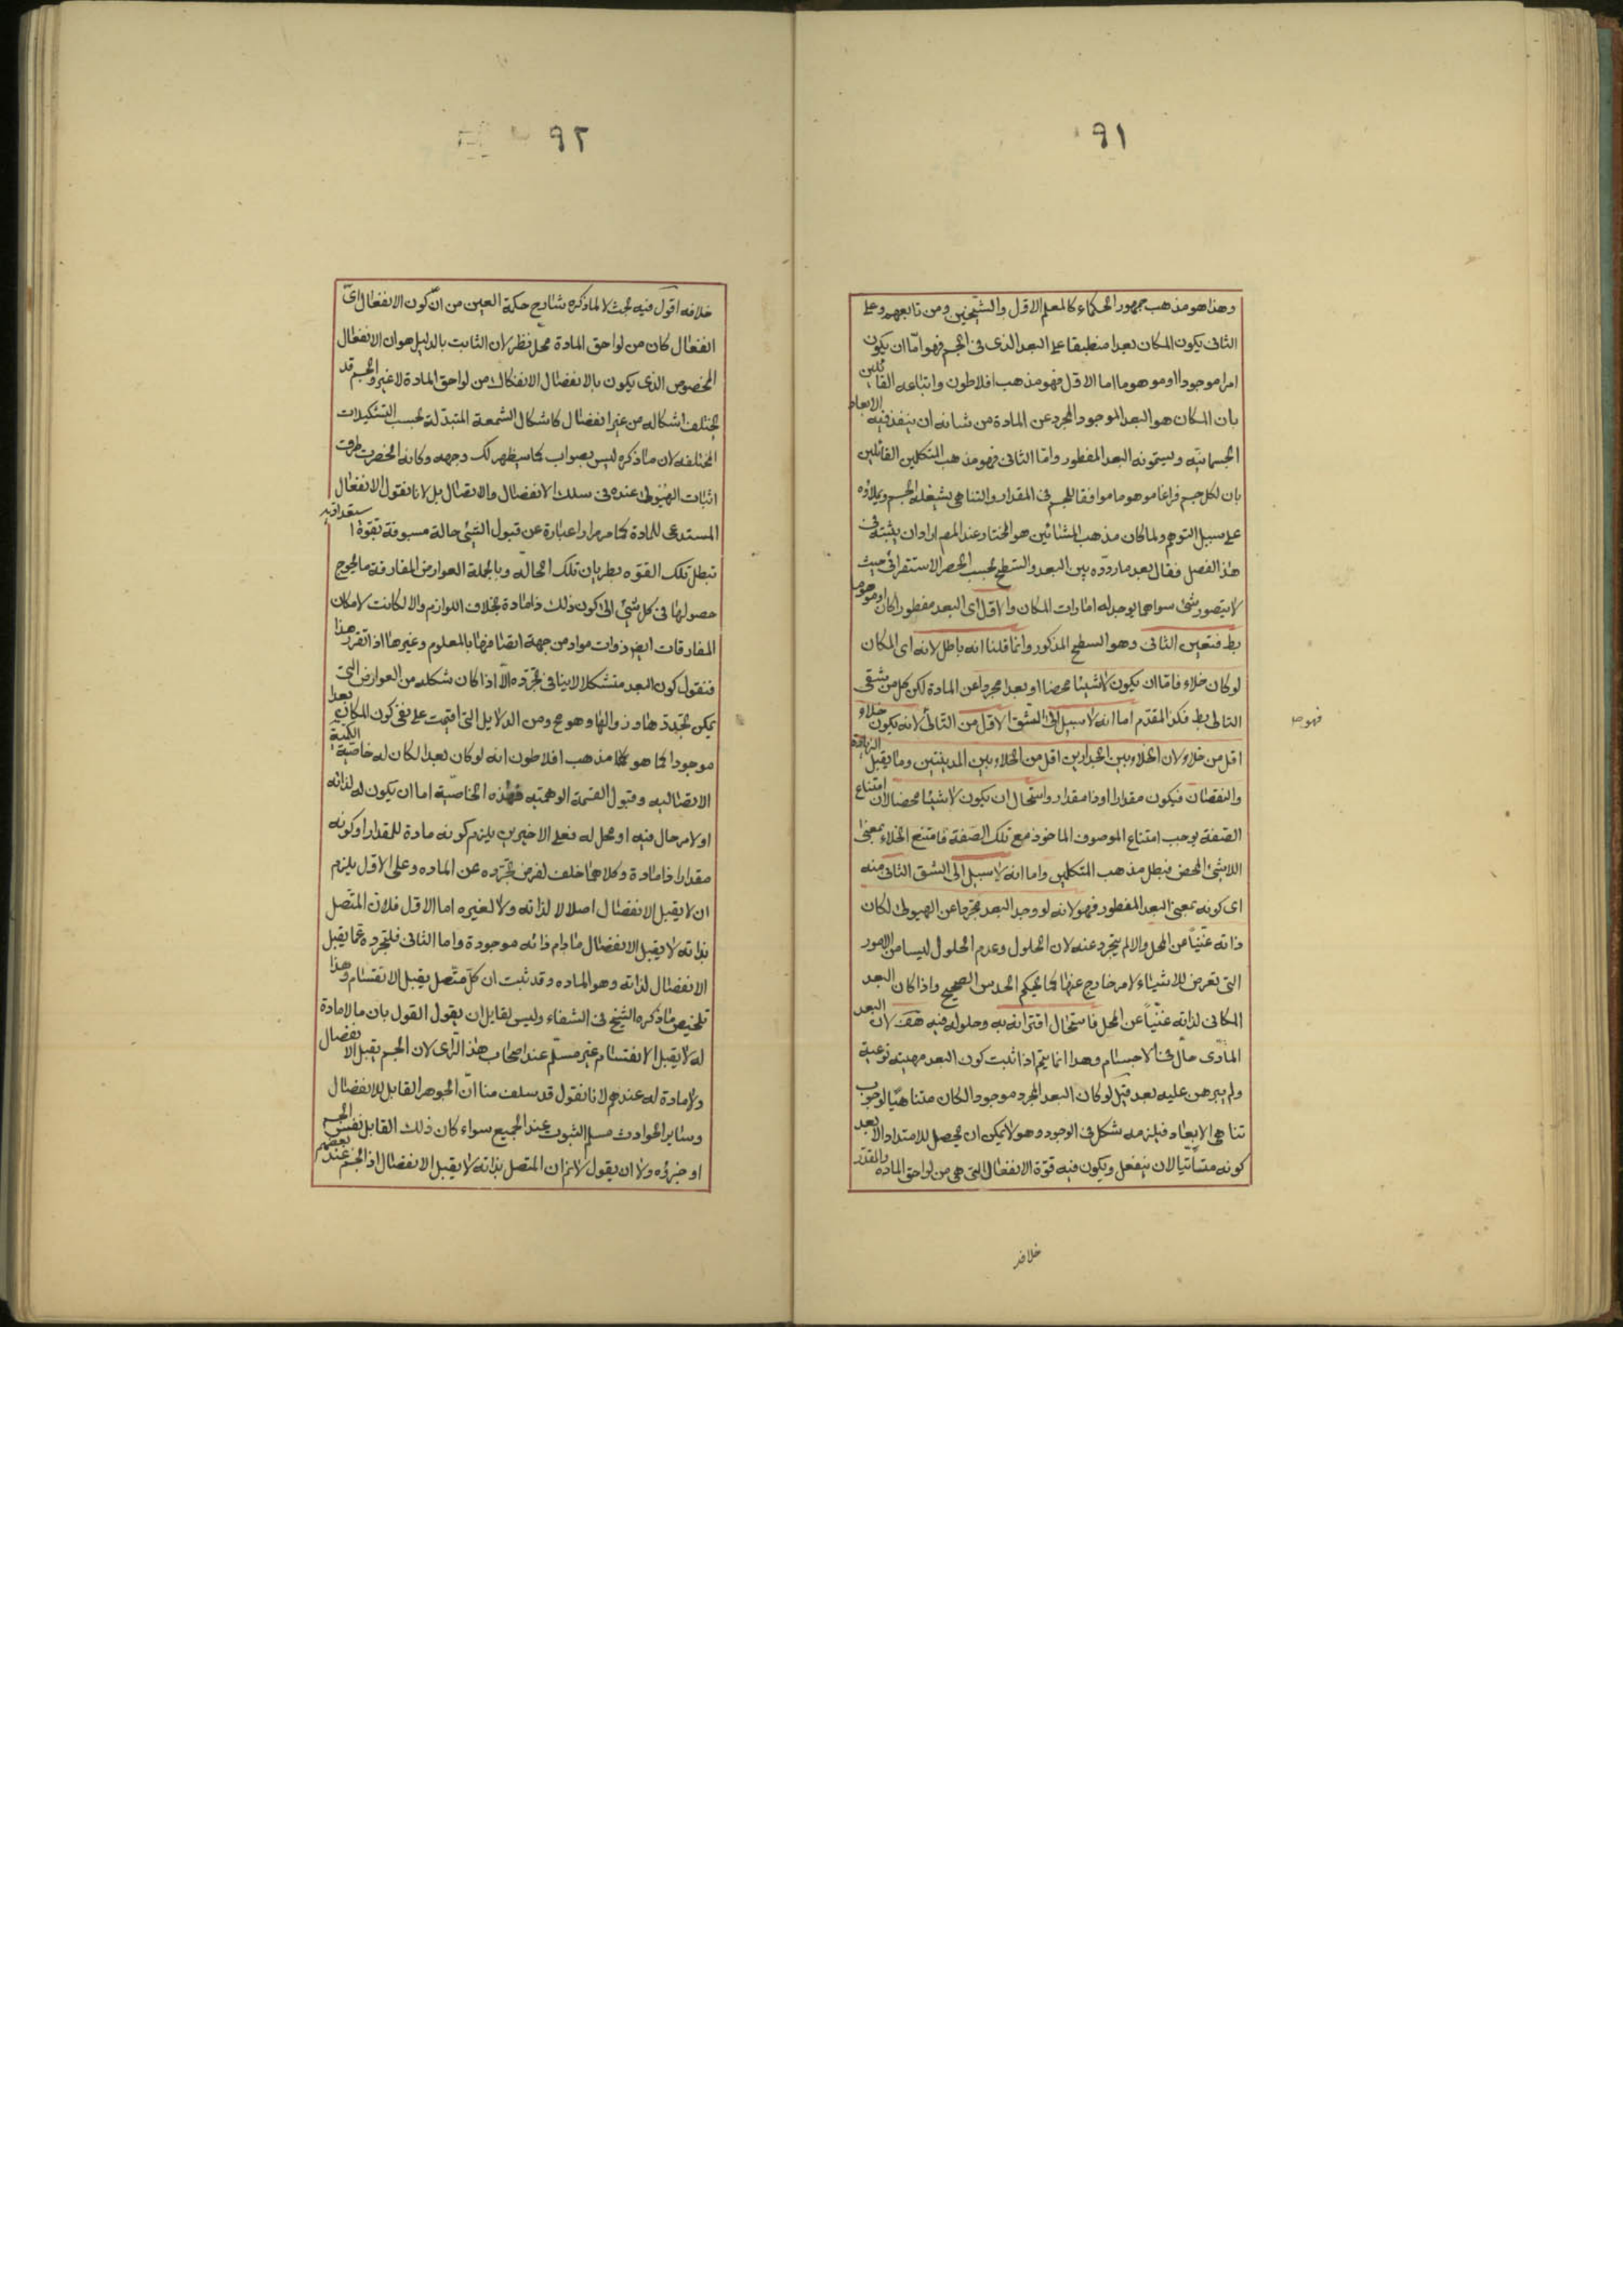 ٩١
وهذا هو مذهب جمهور الحكماء كالمعلم الاول والشيخين ومن تابعهم وعلى
الثانى يكون المكان بعدا منطبقا على البعد الذى فى الجسم فهو امّا ان يكون
امرا موجودا او موهوما اما الاوّل فهو مذهب افلاطون واتباعه القائلين
بان المكان هو البعد الموجود المجرد عن المادة من شانه ان ينفذ فيه الابعاد
الجسمانيّه ويسمونه البعد المفطور وامّا الثانى فهو مذهب المتكلمين القائلين
بان لكل جسم فراغا موهوما موافقا للجسم فى المقدار والتناهى يشغله الجسم ويملاؤه
على سبيل التوهم ولما كان مذهب المشائين هو المختار عند المص اراد ان يثبته فى
هذا الفصل فقال بعد ما ردّده بين البعد والسّطح بحسب الحصر الاستقرائى حيث
لا يتصور شئ سواهما يوجد له امارات المكان والاوّل اى البعد مفطورا كان او موهوما
بط فتعين الثانى وهو السطح المذكور وانما قلنا انه باطل لانه اى المكان
لو كان خلاء فامّا ان يكون لا شيئا محضا او بعدا مجردا عن المادة لكن كل من شقى
التالى بط فكذا المقدّم اما انه لا سبيل الى الشق الاوّل من التالى لانه يكون خلاء
فهو ص
اقل من خلاء لان الخلاء بين الجدارين اقل من الخلاء بين المدينتين وما يقبل الزيادة
والنقصان فيكون مقدارا او ذا مقدار واستحال ان يكون لا شيئا محضا لان امتناع
الصّفة يوجب امتناع الموصوف الماخوذ مع تلك الصّفة فامتنع الخلاء بمعنى
اللا شئ المحض فبطل مذهب المتكلمين واما انه لا سبيل الى الشق الثانى منه
اى كونه بمعنى البعد المفطور فهو لانه لو وجد البعد مجردا عن الهيولى لكان
ذاته غنيّا عن المحل والا لم يتجرد عنه لان الحلول وعدم الحلول ليسا من الامور
التى تعرض للاشياء لامر خارج عنها كما يحكم الحدس الصحيح واذا كان البعد
المكانى لذاته غنيّا عن المحل فاستحال اقترانه به وحلوله فيه هف لان البعد
المادّى حالّ فى الاجسام وهذا انما يتم اذا ثبت كون البعد مهيته نوعية
ولم يبرهن عليه بعد قيل لو كان البعد المجرد موجودا لكان متناهيّا لوجوب
تناهى الابعاد فيلزمه شكل فى الوجود وهو لا يمكن ان يحصل للامتداد الا بعد
كونه متساتيا لان ينفعل ويكون فيه قوّة الانفعال التى هى من لواحق الماده والمقدّر
خلافه
٩٢
خلافه اقول فيه بحث لا لما ذكره شارح حكمة العين من انّ كون الانفعال اىّ
انفعال كان من لواحق المادة محل نظر لان الثابت بالدليل هو ان الانفعال
المخصوص الذى يكون بالانفصال الانفكاك من لواحق المادة لا غير والجسم قد
يختلف اشكاله من غير انفصال كاشكال الشمعة المتبدّلة بحسب التشكيلات
المختلفه لان ما ذكره ليس بصواب كما سيظهر لك وجهه وكانه انحصرت طرق
اثبات الهيولى عنده فى سلك الانفصال والاتصال بل لانا نقول الانفعال
المستدعى للمادة كما مر مرارا عبارة عن قبول الشئ حالة مسبوقة بقوة استعدادية
تبطل تلك القوّه بطريان تلك الحالة وبالجملة العوارض المفارقة ما يحوج
حصولها فى كل شئ الى كون ذلك ذا مادة بخلاف اللوازم والا لكانت لا مكان
المفارقات ايض ذوات مواد من جهة اتصافها بالمعلوم وغيرها اذا تقرر هذا
فنقول كون البعد متشكلا لا ينافى تجرّده الّا اذا كان شكله من العوارض التى
يمكن تجدّدها وزوالها وهو مح ومن الدلايل التى اقيمت على نفى كون المكان بعدا
موجودا كما هو مذهب افلاطون انه لو كان بعدا لكان له خاصّية الكمّية
الاتصاليه وقبول القسمة الوهميّه فهذه الخاصّية اما ان يكون له لذاته
او لامر حال فيه او محل له فعلى الاخيرين يلزم كونه مادة للمقدار او كونه
مقدارا ذا مادة وكلاهما خلف لفرض تجرّده عن الماده وعلى الاول يلزم
ان لا يقبل الانفصال اصلا لا لذاته ولا لغيره اما الاول فلان المتّصل
بذاته لا يقبل الانفصال مادام ذاته موجودة واما الثانى فلتجرده عما يقبل
الانفصال لذاته وهو الماده وقد ثبت ان كلّ متّصل يقبل الانقسام وهذا
تلخيص ما ذكره الشيخ فى الشفاء وليس لقايل ان يقول القول بان ما لا مادة
له لا يقبل الانقسام غير مسلّم عند اصحاب هذا الراى لان الجسم يقبل الانفصال
ولا مادة له عندهم لانا نقول قد سلف منا انّ الجوهر القابل للانفصال
وساير الحوادث مسلم الثبوت عند الجميع سواء كان ذلك القابل نفس الجسم
او جزؤه ولا ان يقول لا نم ان المتصل بذاته لا يقبل الانفصال اذ الجسم عند بعضهم